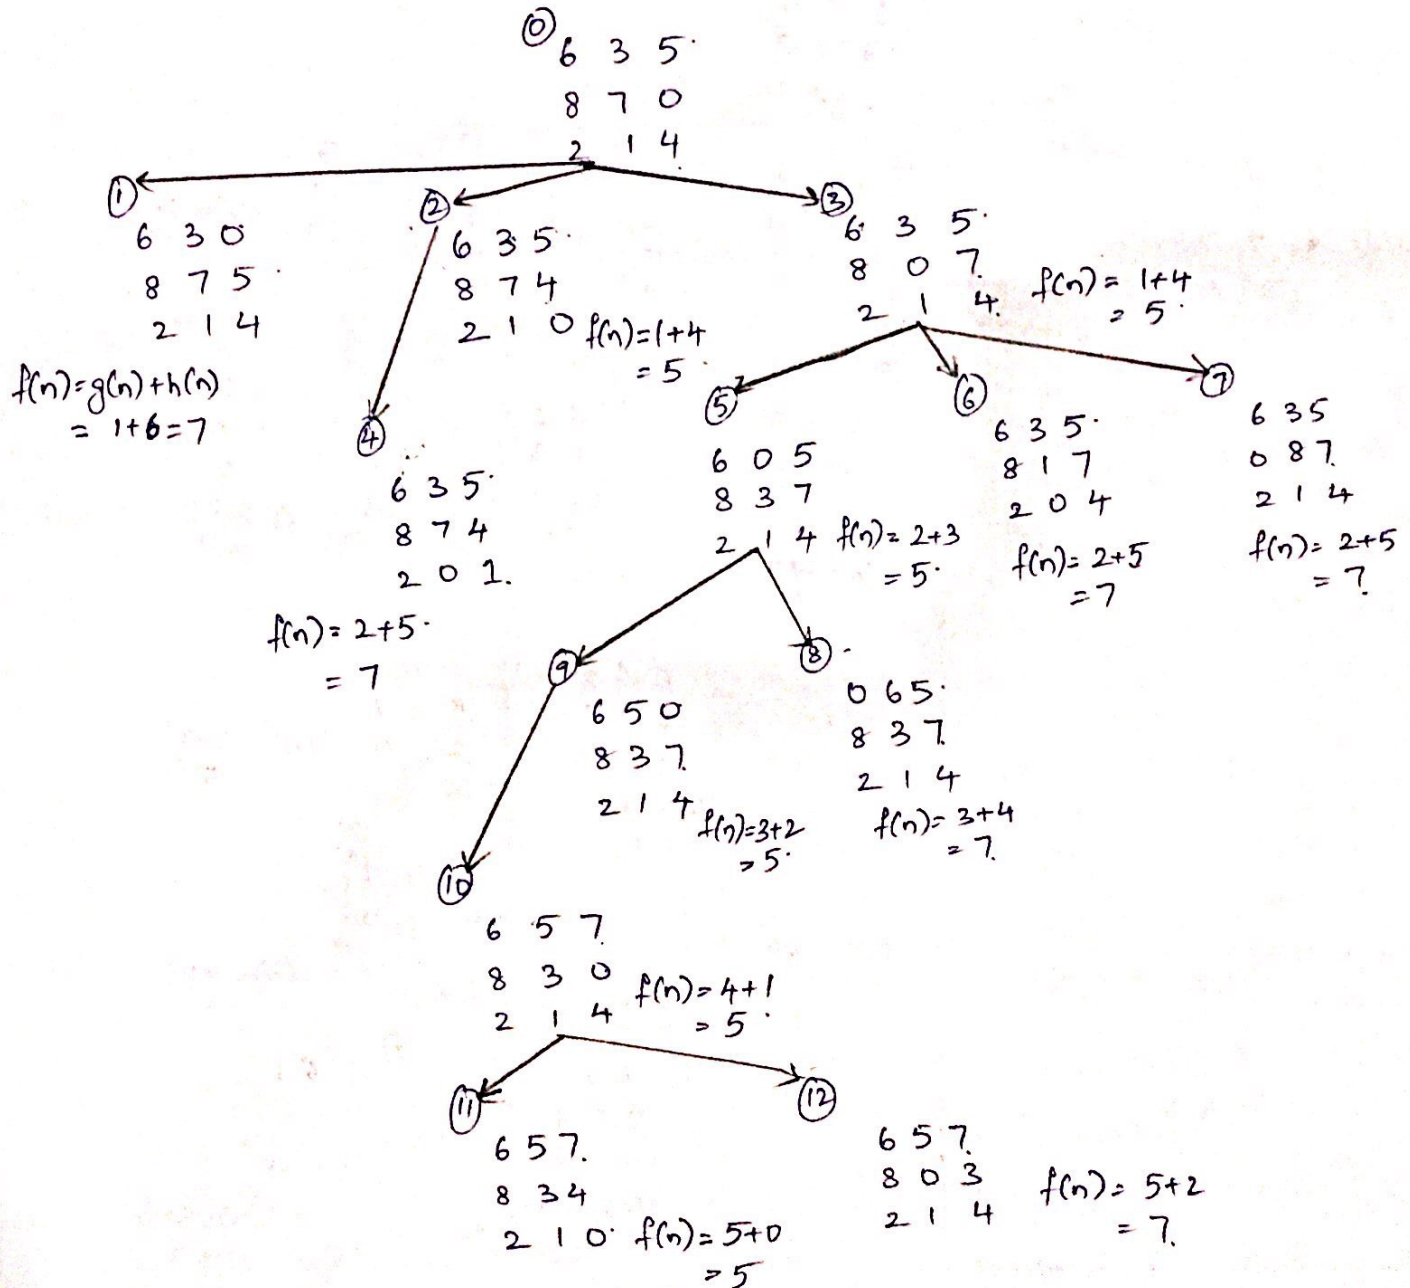 0
6 3 5
8 7 0
2 1 4
1
6 3 0
8 7 5
2 1 4
f(n)=g(n)+h(n)
= 1+6=7
2
6 3 5
8 7 4
2 1 0 f(n)=1+4
= 5
3
6 3 5
8 0 7
2 1 4 f(n)= 1+4
= 5
4
6 3 5
8 7 4
2 0 1
f(n)= 2+5
= 7
5
6 0 5
8 3 7
2 1 4 f(n)= 2+3
= 5
6
6 3 5
8 1 7
2 0 4
f(n)= 2+5
=7
7
6 3 5
0 8 7
2 1 4
f(n)= 2+5
= 7
9
6 5 0
8 3 7
2 1 4 f(n)=3+2
= 5
8
0 6 5
8 3 7
2 1 4
f(n)= 3+4
= 7
10
6 5 7
8 3 0
2 1 4 f(n)= 4+1
= 5
11
6 5 7
8 3 4
2 1 0 f(n)= 5+0
= 5
12
6 5 7
8 0 3
2 1 4 f(n)= 5+2
= 7